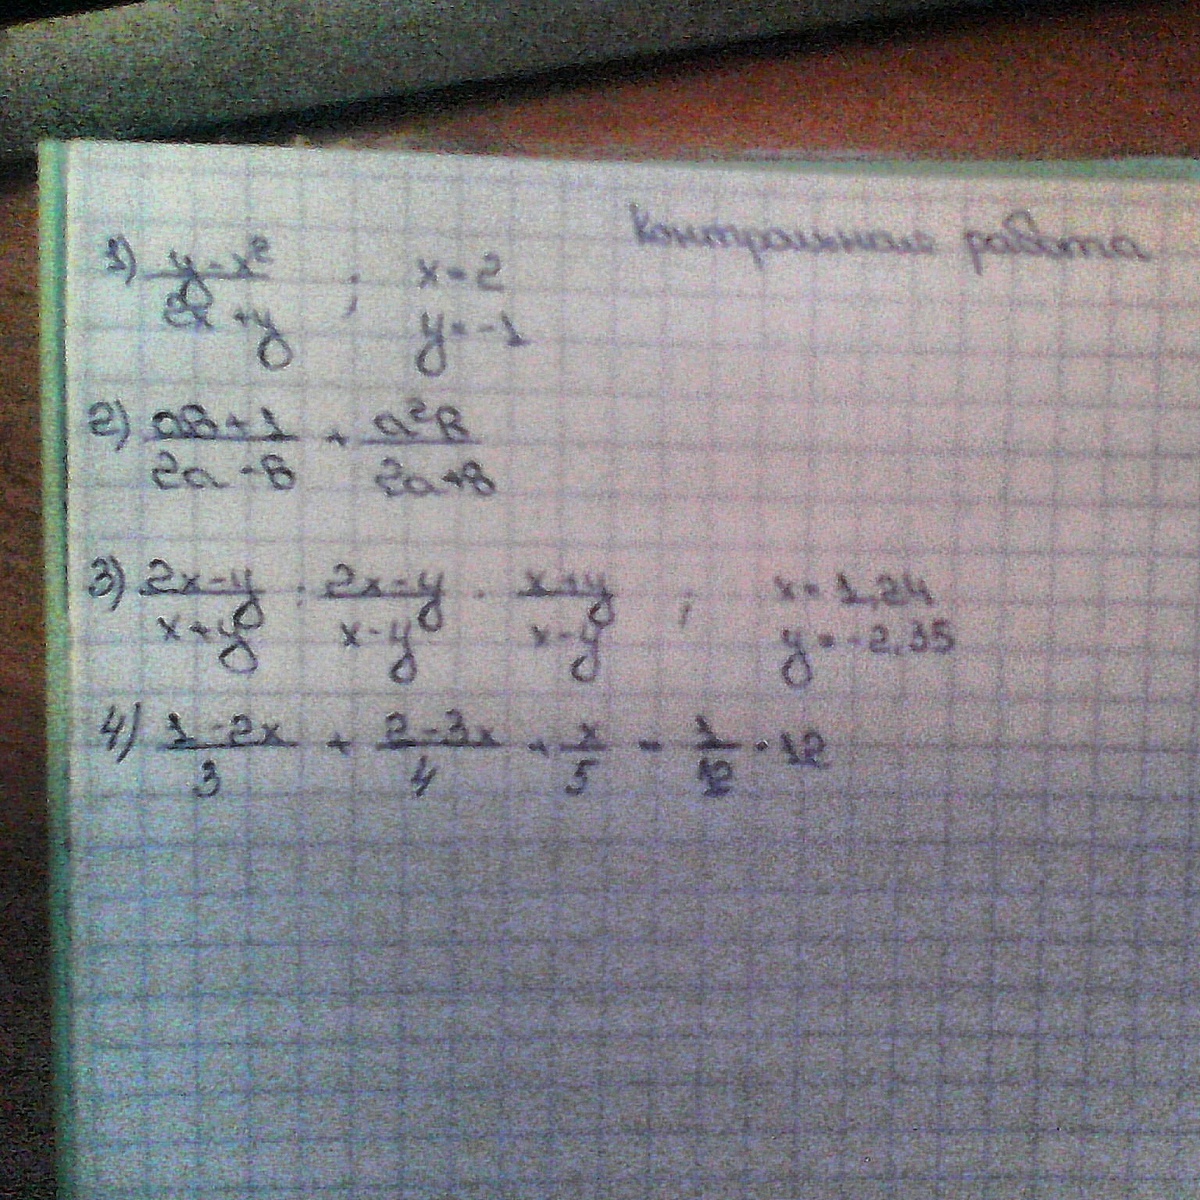 Контрольная работа
1) (y - x²)/(2x + y) ; x = 2
y = -1
2) (ab + 1)/(2a - b) + (a²b)/(2a + b)
3) (2x - y)/(x + y) : (2x - y)/(x - y) · (x + y)/(x - y) ; x = 1,24
y = -2,35
4) (1 - 2x)/3 + (2 - 3x)/4 + x/5 = 1/12 · 12